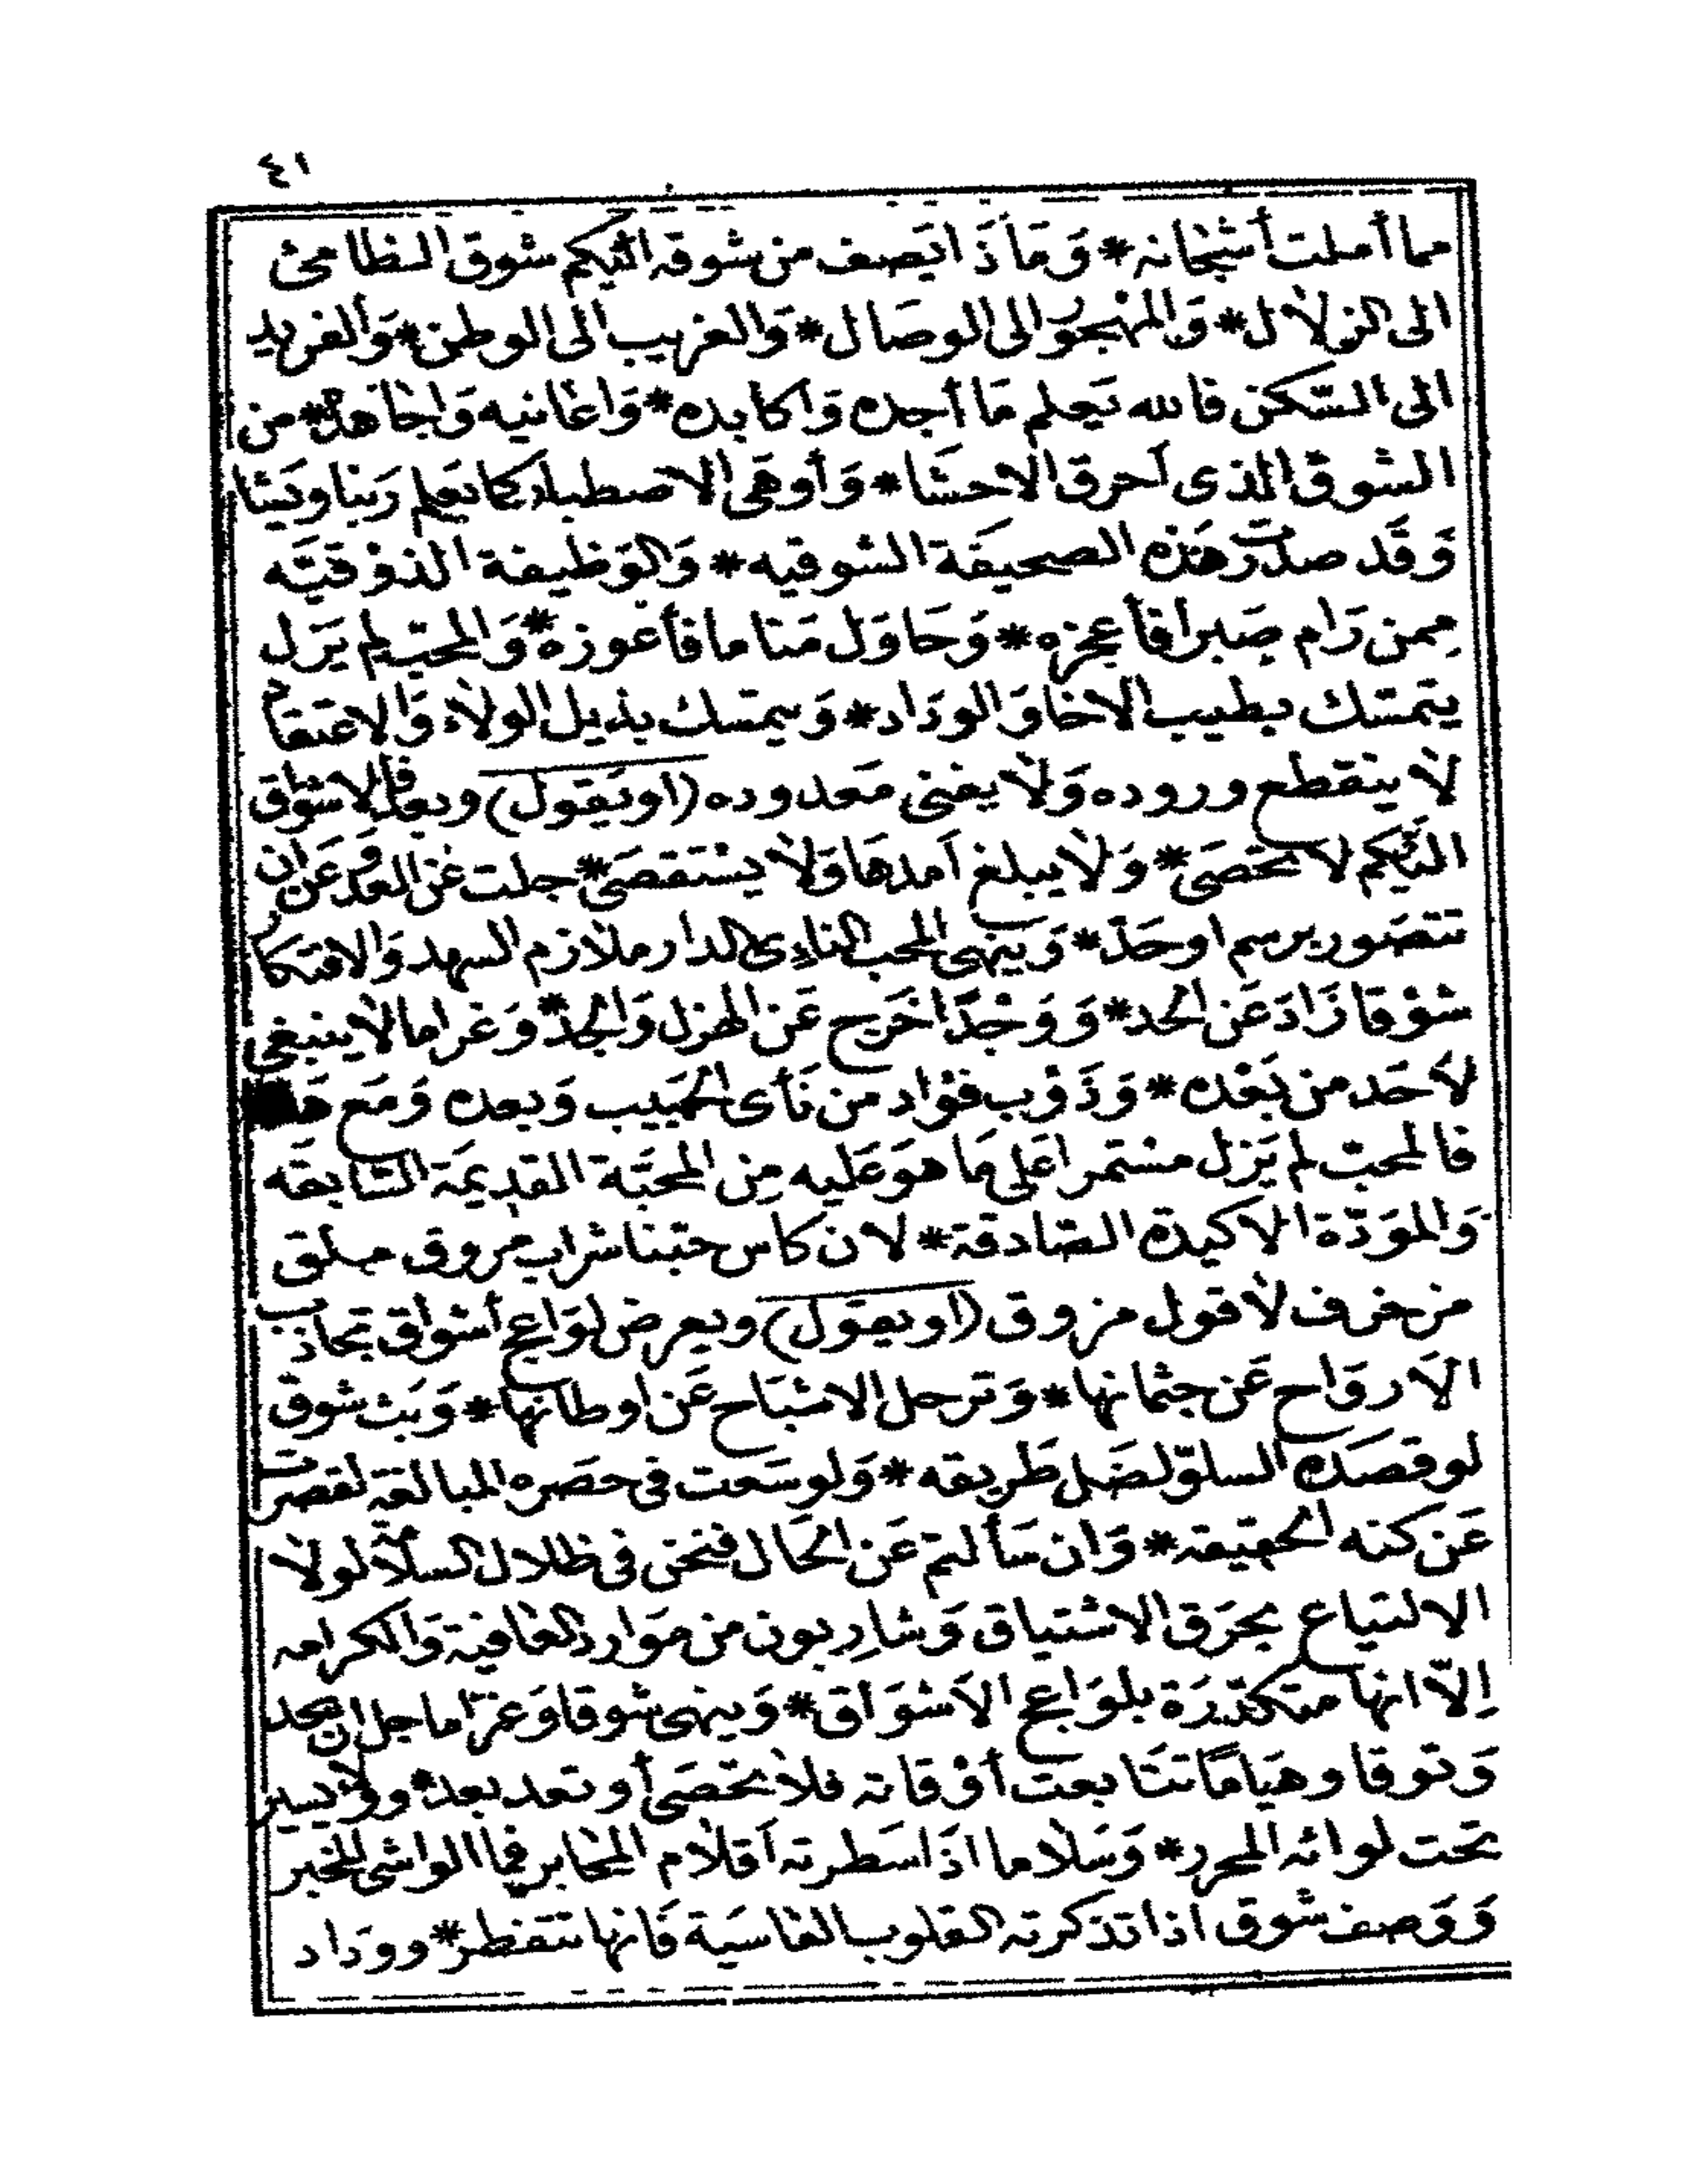 ٤١
مما أملت أشجانه * وَمَاذَا يَصف من شوقه اليكم شوق الظامئ
الى الزلال * وَالمهْجور الى الوصَال * وَالغريب الى الوطن * وَالفريد
الى السّكن فالله يَعلم مَا أجده وَاكابده * وَاعانيه وَاجاهده * من
الشوق الذى أحرق الاحشَا * وَأوهَى الاصطبار كما يعلم رَبنا ويَشا
وَقَد صدرت هَذه الصحيفَة الشوقيه * وَالوَظيفة الذوْقيَّه
مِمن رَام صَبرا فأعجزه * وَحَاوَل مَناما فأعوزه * وَالمحبّ لم يَزل
يتمسّك بطيب الاخا وَالودَاد * وَيمتسك بذيل الولاء وَالاعتقاد
لا ينقطع وروده وَلا يفنى مَعدوده (او يَقول) وبعد فالاشواق
اليْكم لا تحصَى * وَلا يبلغ أمدهَا وَلا يسْتقصَى * جلت عَن العد وَعَن ان
تتصَور برسم او حَدّ * وَينهى المحب الناءى الدار ملازم السهد وَالافتكار
شوْقا زَادَ عَن الحد * وَوَجْدًا خَرج عَن الهزل وَالجدّ * وَغراما لا ينبغى
لأحَد من بَعْده * وَذَوْب فؤاد من نَأى الحَبيب وَبعده وَمَع هَذا
فالمحبّ لم يَزل مسْتمرا عَلى مَا هوَ عَليه مِن المحبَّة القديمَة السَّابقَه
وَالموَدّة الاكيدة الصّادقة * لان كاس حبّنا شراب مروق مبلق
مزخرف لا قول مزوق (او يقول) ويعرض لوَاعج أشواق تجاذب
الأروَاح عَن جثمانها * وَترحل الاشبَاح عَن اوطانها * وَبَث شوق
لو قصَده السلوّ لضَل طَريقه * وَلو سَعت فى حصَره المبالغة لقصرت
عَن كنه الحقيقة * وَان سَألتم عَن الحَال فنحن فى ظلال السلامة لولا
الالتياع بحرَق الاشتياق وَشارِبون من مَوارد العافية وَالكرامه
اِلاّ انها متكدّرَة بلوَاعج الأشوَاق * وَينهى شوقا وَغرَاما جل ان يحد
وَتوقا وهيَامًا تتَابعت أوْقاته فلا تحصَى أو تعد بعد * وولاء يسير
تحت لوائه المحرر * وَسَلاما اذَا سَطرته أقلام المحابر فما الواشى المخبر
وَوَصف شوق اذا تذكرته القلوب القاسيَة فَانها تتفطر * وودَاد